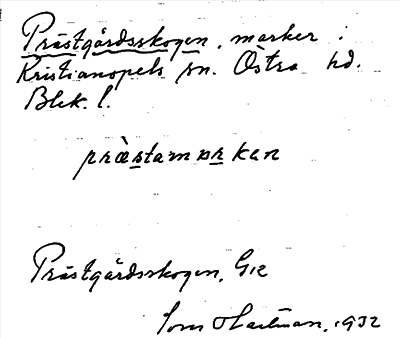 Prästgårdsskogen, marker i
Kristianopels sn. Östra hd.
Blek. l.
præ̀stamarkan
Prästgårdsskogen, G12
Ivar Hartman, 1932